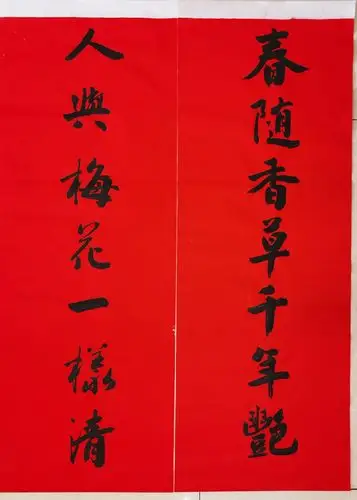 春随香草千年豔
人與梅花一樣清